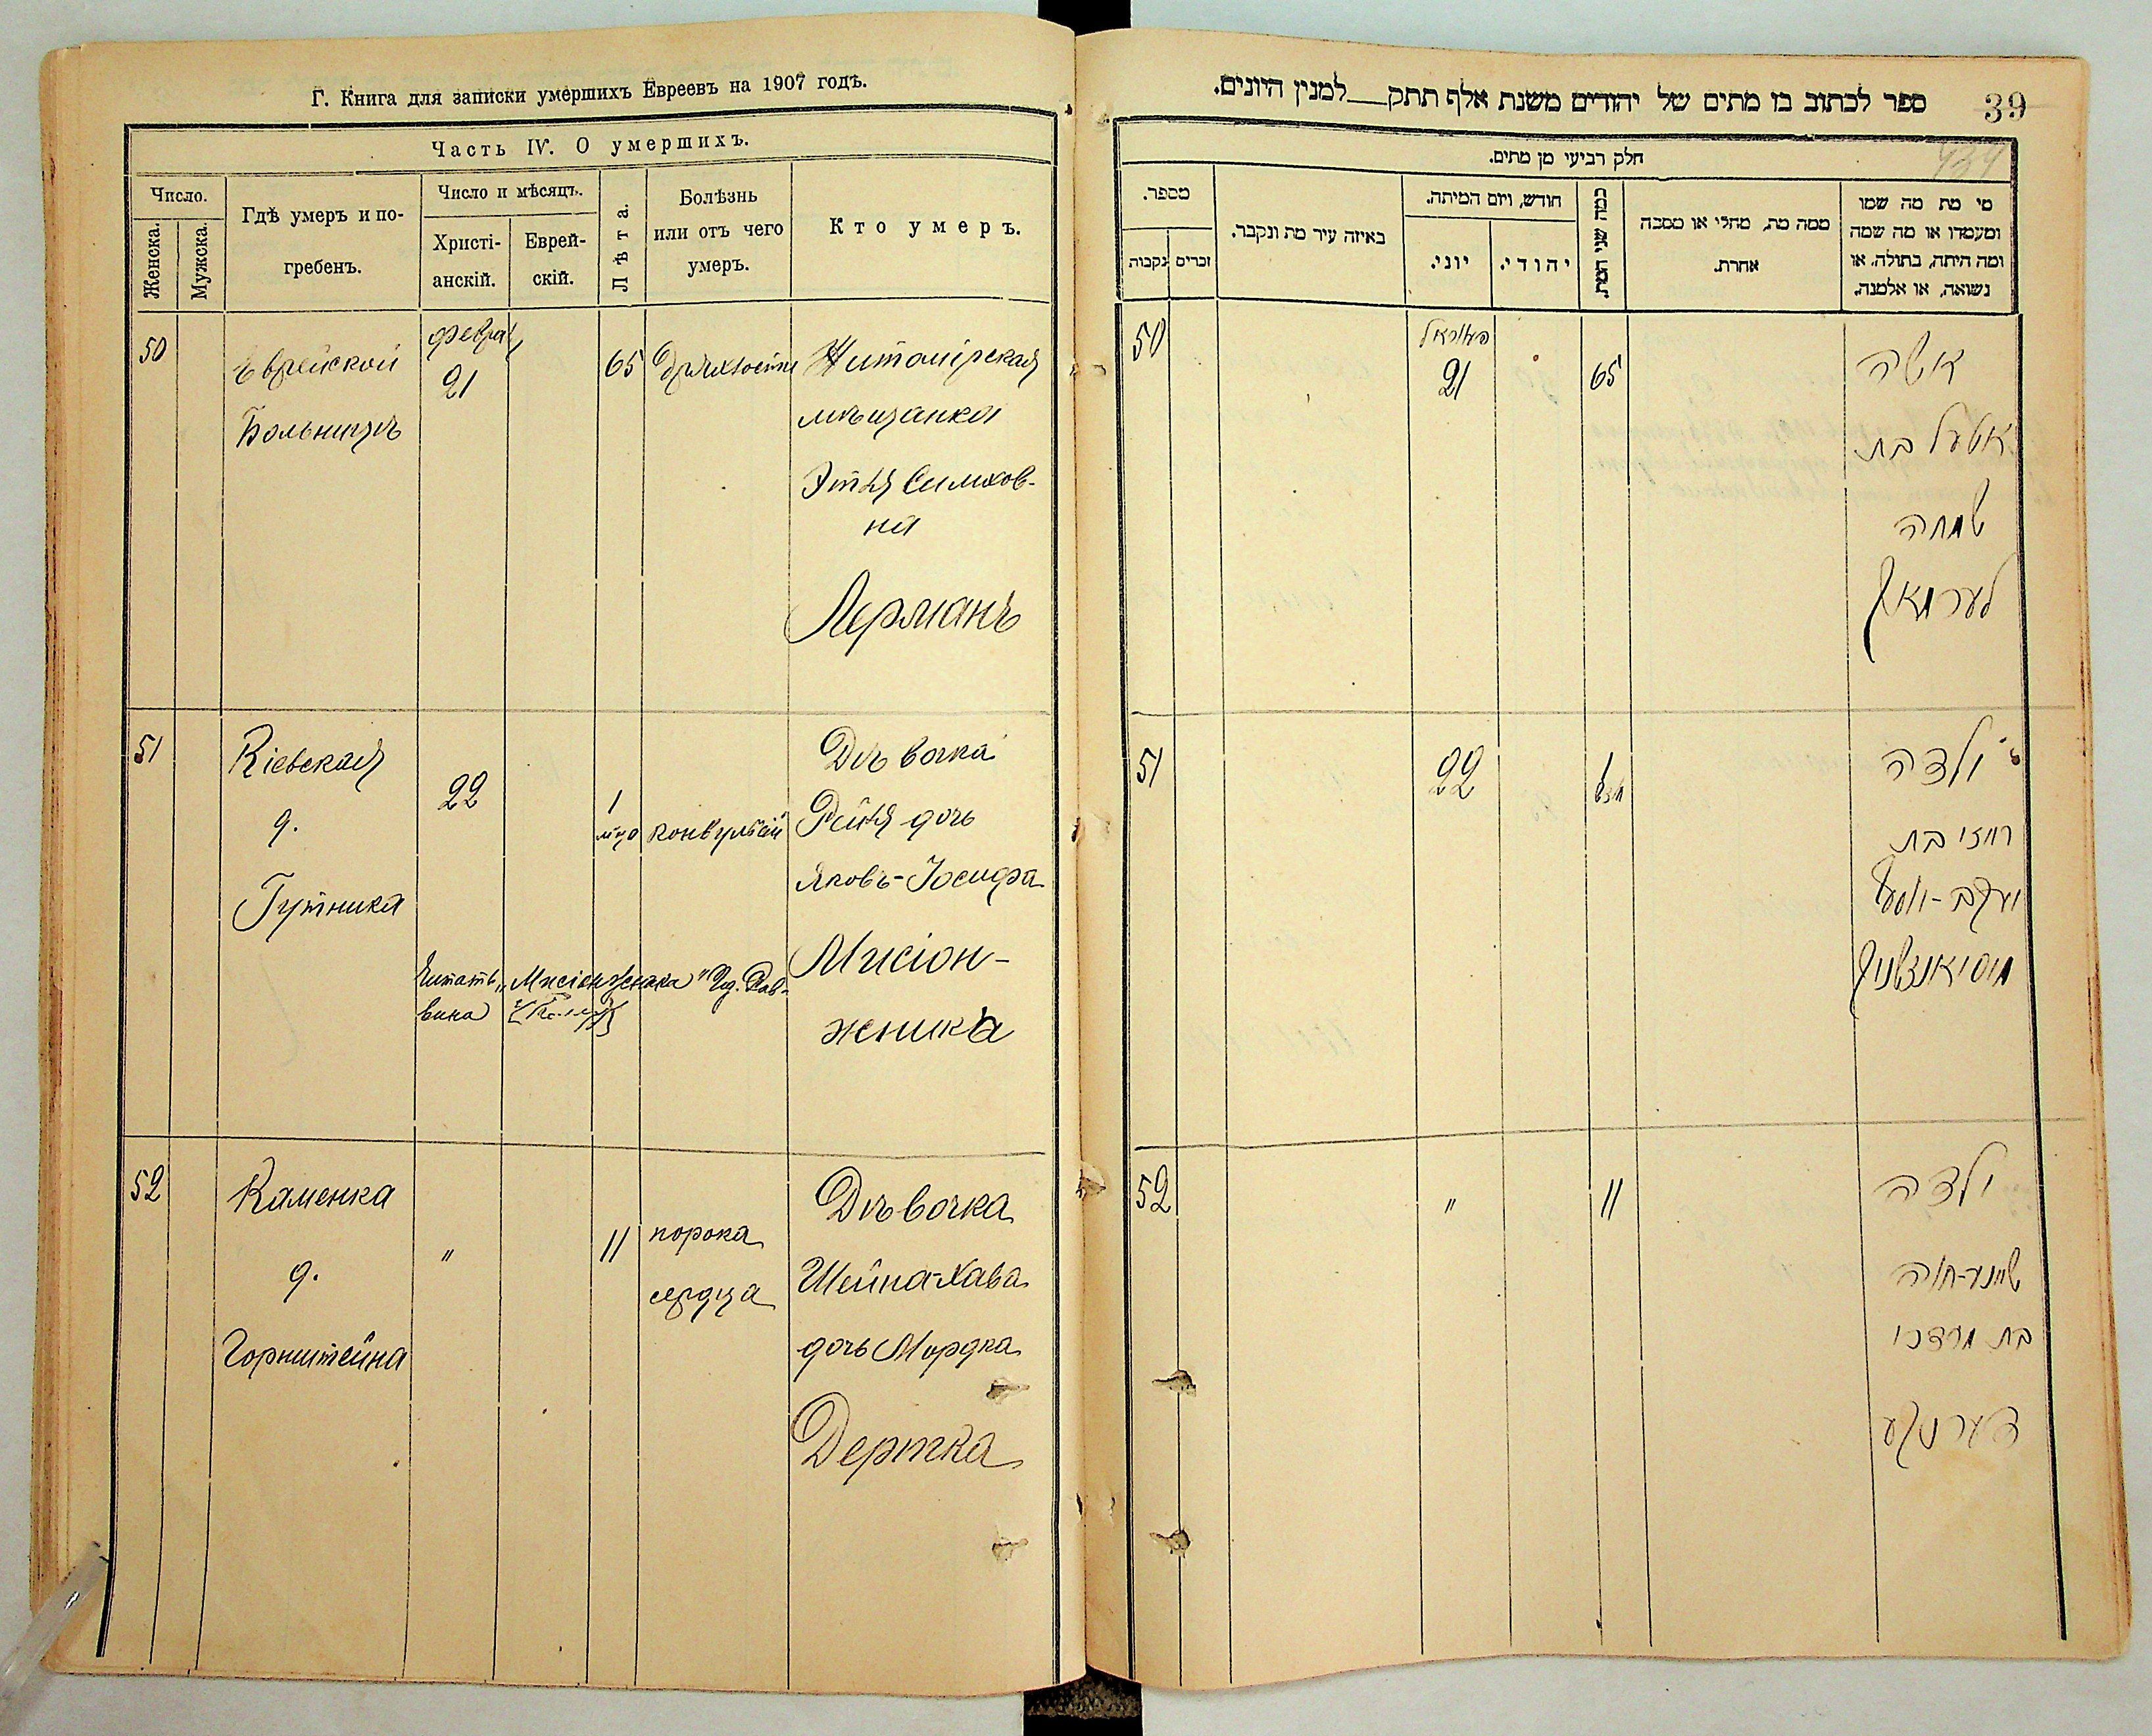 Г. Книга для записки умершихъ Евреевъ на 1907 годъ.
Часть IV. О умершихъ.
Число.
Женска.
Мужска.
Гдѣ умеръ и по-
гребенъ.
Число и мѣсяцъ.
Христі-
анскій.
Еврей-
скій.
Лѣта.
Болѣзнь
или отъ чего
умеръ.
Кто умеръ.
50
Еврейской
Больницѣ
Февра
21
65
Житомірская
мѣщанка
Этля Симхов-
на
Лерманъ
51
Кіевская
д.
Гутника
22
1
мца
конвульсій
Дѣвочка
Рейзя дочь
Яковъ-Іосифа
Мисіон-
жника
Читать „Мисіонжника" Уд. Рав-
вина
52
Каменка
д.
Горнштейна
"
11
порока
сердца
Дѣвочка
Шейна-Хава
дочь Мордка
39
ספר לכתוב בו מתים של יהודים משנת אלף תתק למנין היונים.
חלק רביעי מן מתים.
מספר.
נקבות
זכרים
באיזה עיר מת ונקבר.
חודש, ויום המיתה.
יוני.
יהודי.
כמה שני המת.
ממה מת, מחלי או מסבה
אחרת.
מי מת מה שמו
ומעמדו או מה שמה
ומה היתה, בתולה, או
נשואה, או אלמנה.
50
פעוראל
21
65
אשה
אטעל בת
שמחה
לערמאן
51
22
1
חדש
ילדה
רייזי בת
יעקב-יוסף
מיסיאנזשניק
52
"
11
ילדה
שיינד-חוה
בת מרדכי